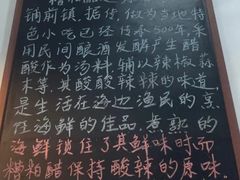 铺前镇,据传,做为当地特
色小吃已经传承500年,采
用民间酿酒发酵产生醋
酸作为汤料,辅以辣椒蒜
末等,其酸酸辣辣的味道,
是生活在海边渔民的烹
任海鲜的佳品,煮熟的
海鲜锁住了其鲜味时而
糟粕醋保持酸辣的原味。